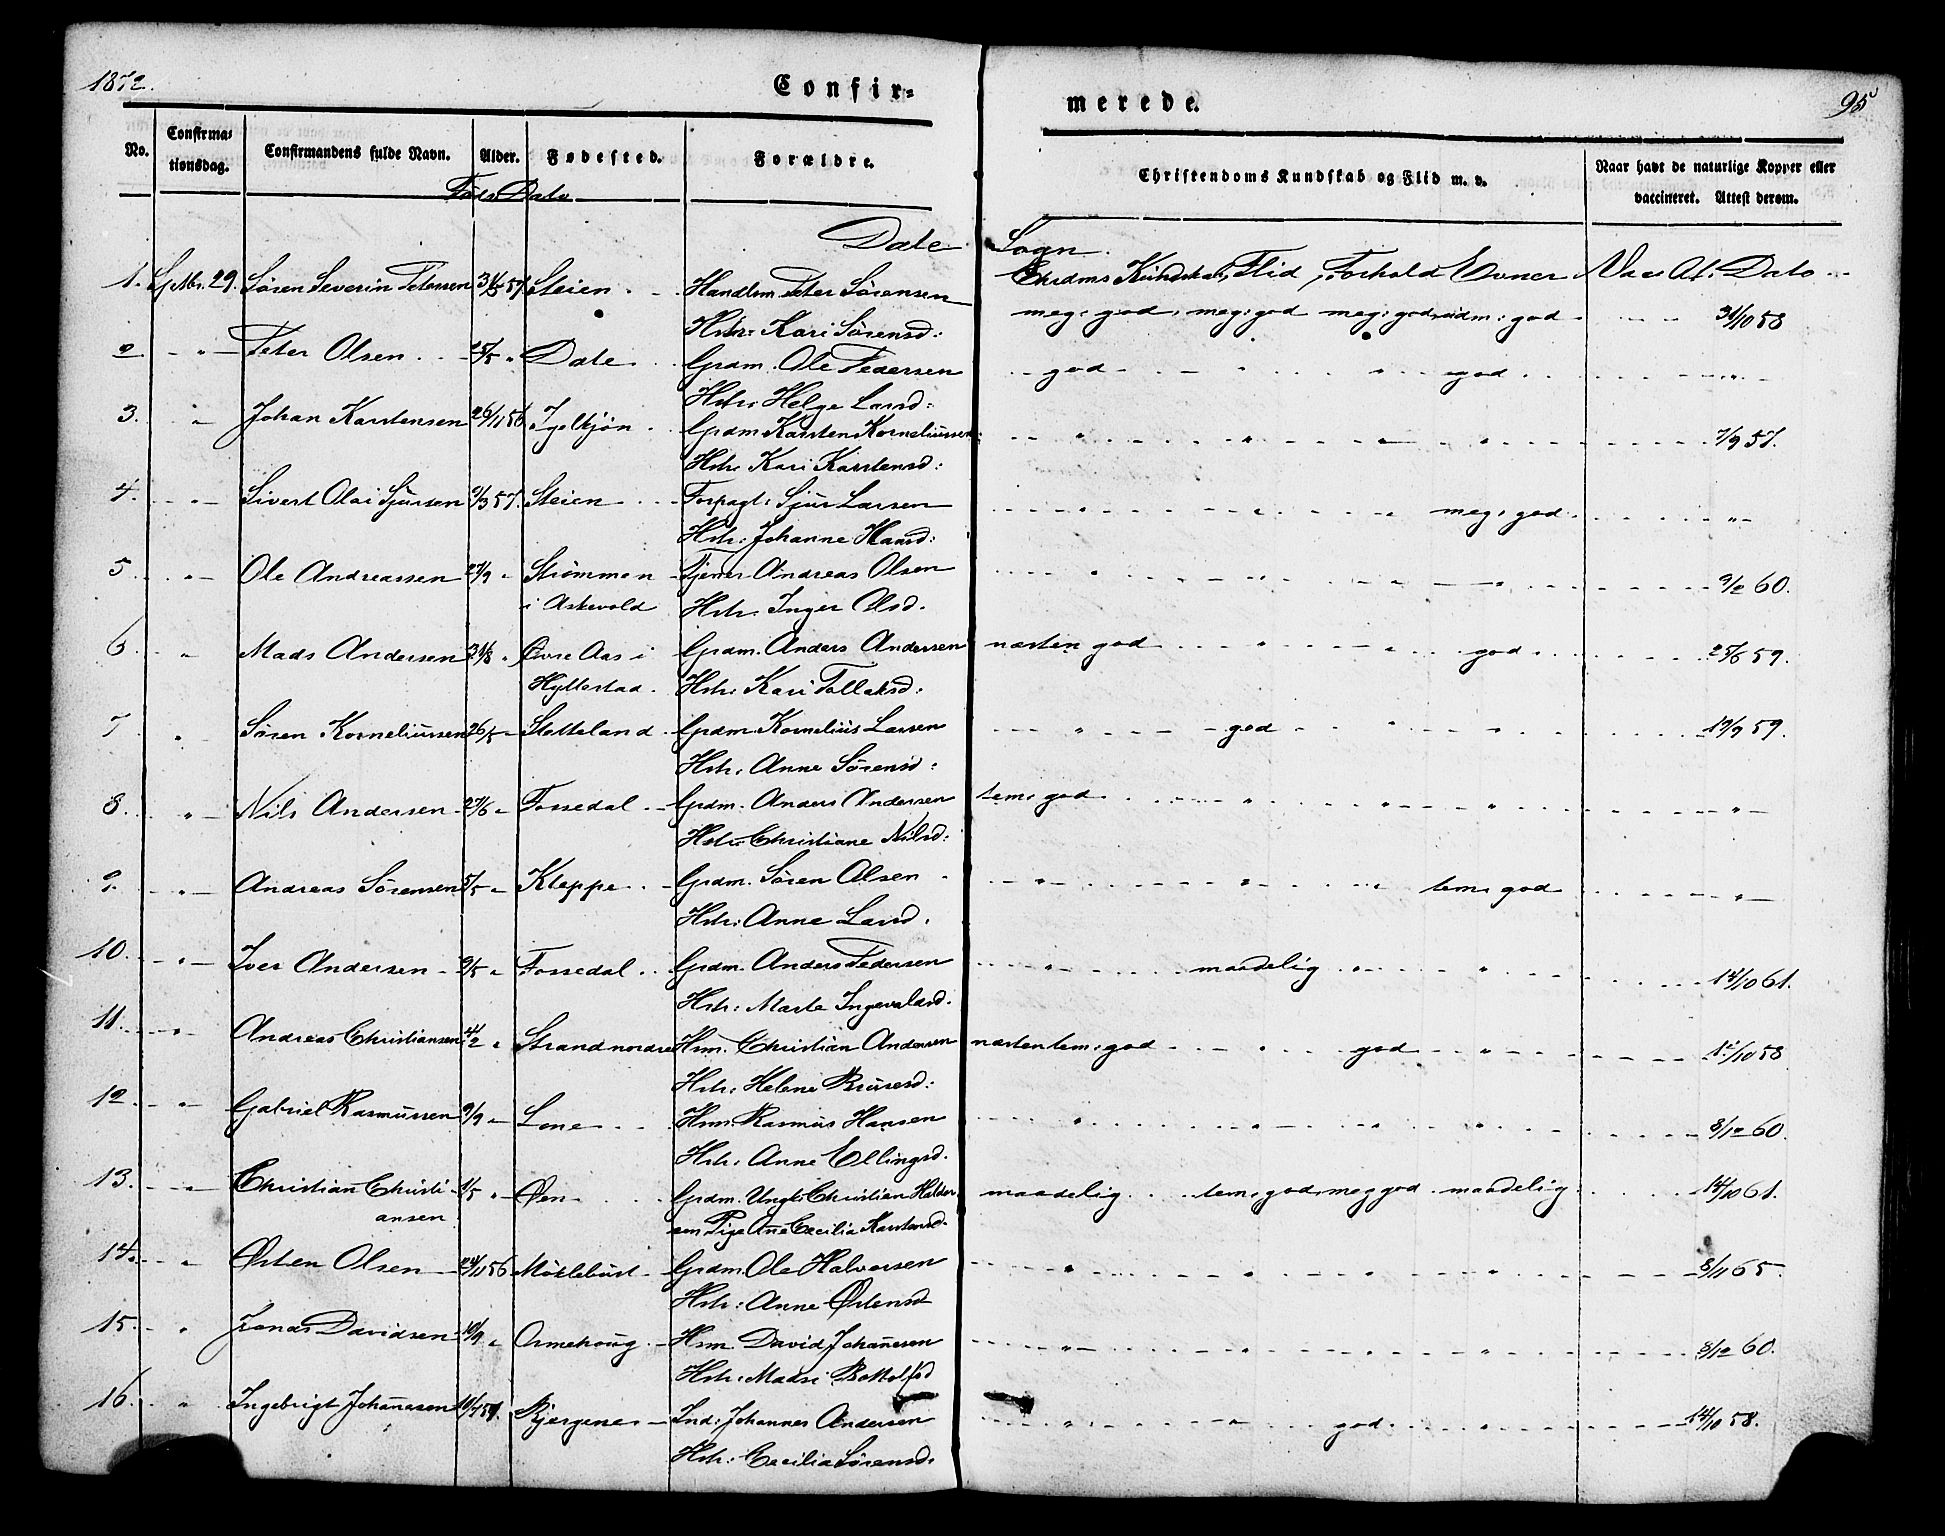 1872.
Confir=
merede.
95
No.
Confirma=
tionsdag.
Confirmandens fulde Navn.
Alder.
Fødested.
Forældre.
Christendoms Kundskab og Flid m. v.
Naar havt de naturlige Kopper eller
vaccineret. Attest derom.
Føds Dato
Dale Sogn.
Chrdms Kundskab, Flid, Forhold Evner Vac. At. Dato
1. Septbr. 29. Søren Severin Petersen 31/5 57. Steien Handlm. Peter Sørensen meg: god meg: god meg: god god 31/10 58
Hstr: Kari Sørensd:
2 " Peter Olsen 25/5 " Dale Grdm. Ole Pedersen god " " god "
Hstr: Helge Larsd:
3. " Johan Karstensen 26/11 56 Igelkjøn Grdm Karsten Korneliussen " " " " 7/9 57.
Hstr. Kari Karstensd:
4. " Sivert Olai Sjursen 9/3 57. Steien Forpagt: Sjur Larsen " " " meg: god "
Hstr: Johanne Hansd:
5 " Ole Andreassen 27/9 " Strømmen Tjener Andreas Olsen " " " " 9/12 60.
i Askevold Hstr. Inger Olsd.
6 " Mads Andersen 31/8 " Øvre Aas i Grdm. Anders Andersen næsten god " " god 25/6 59.
Hyllestad. Hstr: Kari Tollaksd:
7 " Søren Korneliussen 26/5 " Statteland Grdm Kornelius Larsen " god " " 19/9 59.
Hstr: Anne Sørensd:
8. " Nils Andersen 27/6 " Fossedal Grdm. Anders Andersen tem: god " " " "
Hstr: Christiane Nilsd:
9. " Andreas Sørensen 5/5 " Kleppe Grdm. Søren Olsen " " " tem: god "
Hstr: Anne Larsd.
10. " Iver Andersen 9/5 " Fossedal Grdm. Anders Pedersen " maadelig " " 14/10 61.
Hstr: Marte Ingevaldsd.
11. " Andreas Christiansen 4/2 " Strand nordre Hsm. Christian Andersen næsten tem: god " god " 12/10 58
Hstr: Helene Brusesd:
12 " Gabriel Rasmussen 9/9 " Lone Hsm. Rasmus Hansen " " " " 8/12 60.
Hstr: Anne Ellingsd.
13. " Christian Christi- 1/5 " Øen Grdm. Ungk: Christian Halder. maadelig tem: god meg god maadelig 14/10 61.
ansen Pige Ane Cecilia Karstensd.
14. " Østen Olsen 24/11 56 Møklebust Grdm Ole Halvorsen " " " " 8/11 65.
Hstr: Anne Østensd
15. " Jonas Davidsen 10/9 " Ormehoug Hsm David Johanesen " " " " 8/12 60.
Hstr: Madsi Bottolfsd
16. " Ingebrigt Johanesen 10/4 57. Bjergene Ind: Johannes Andersen " " god " 14/10 58.
Hstr: Cecilia Sørensd.